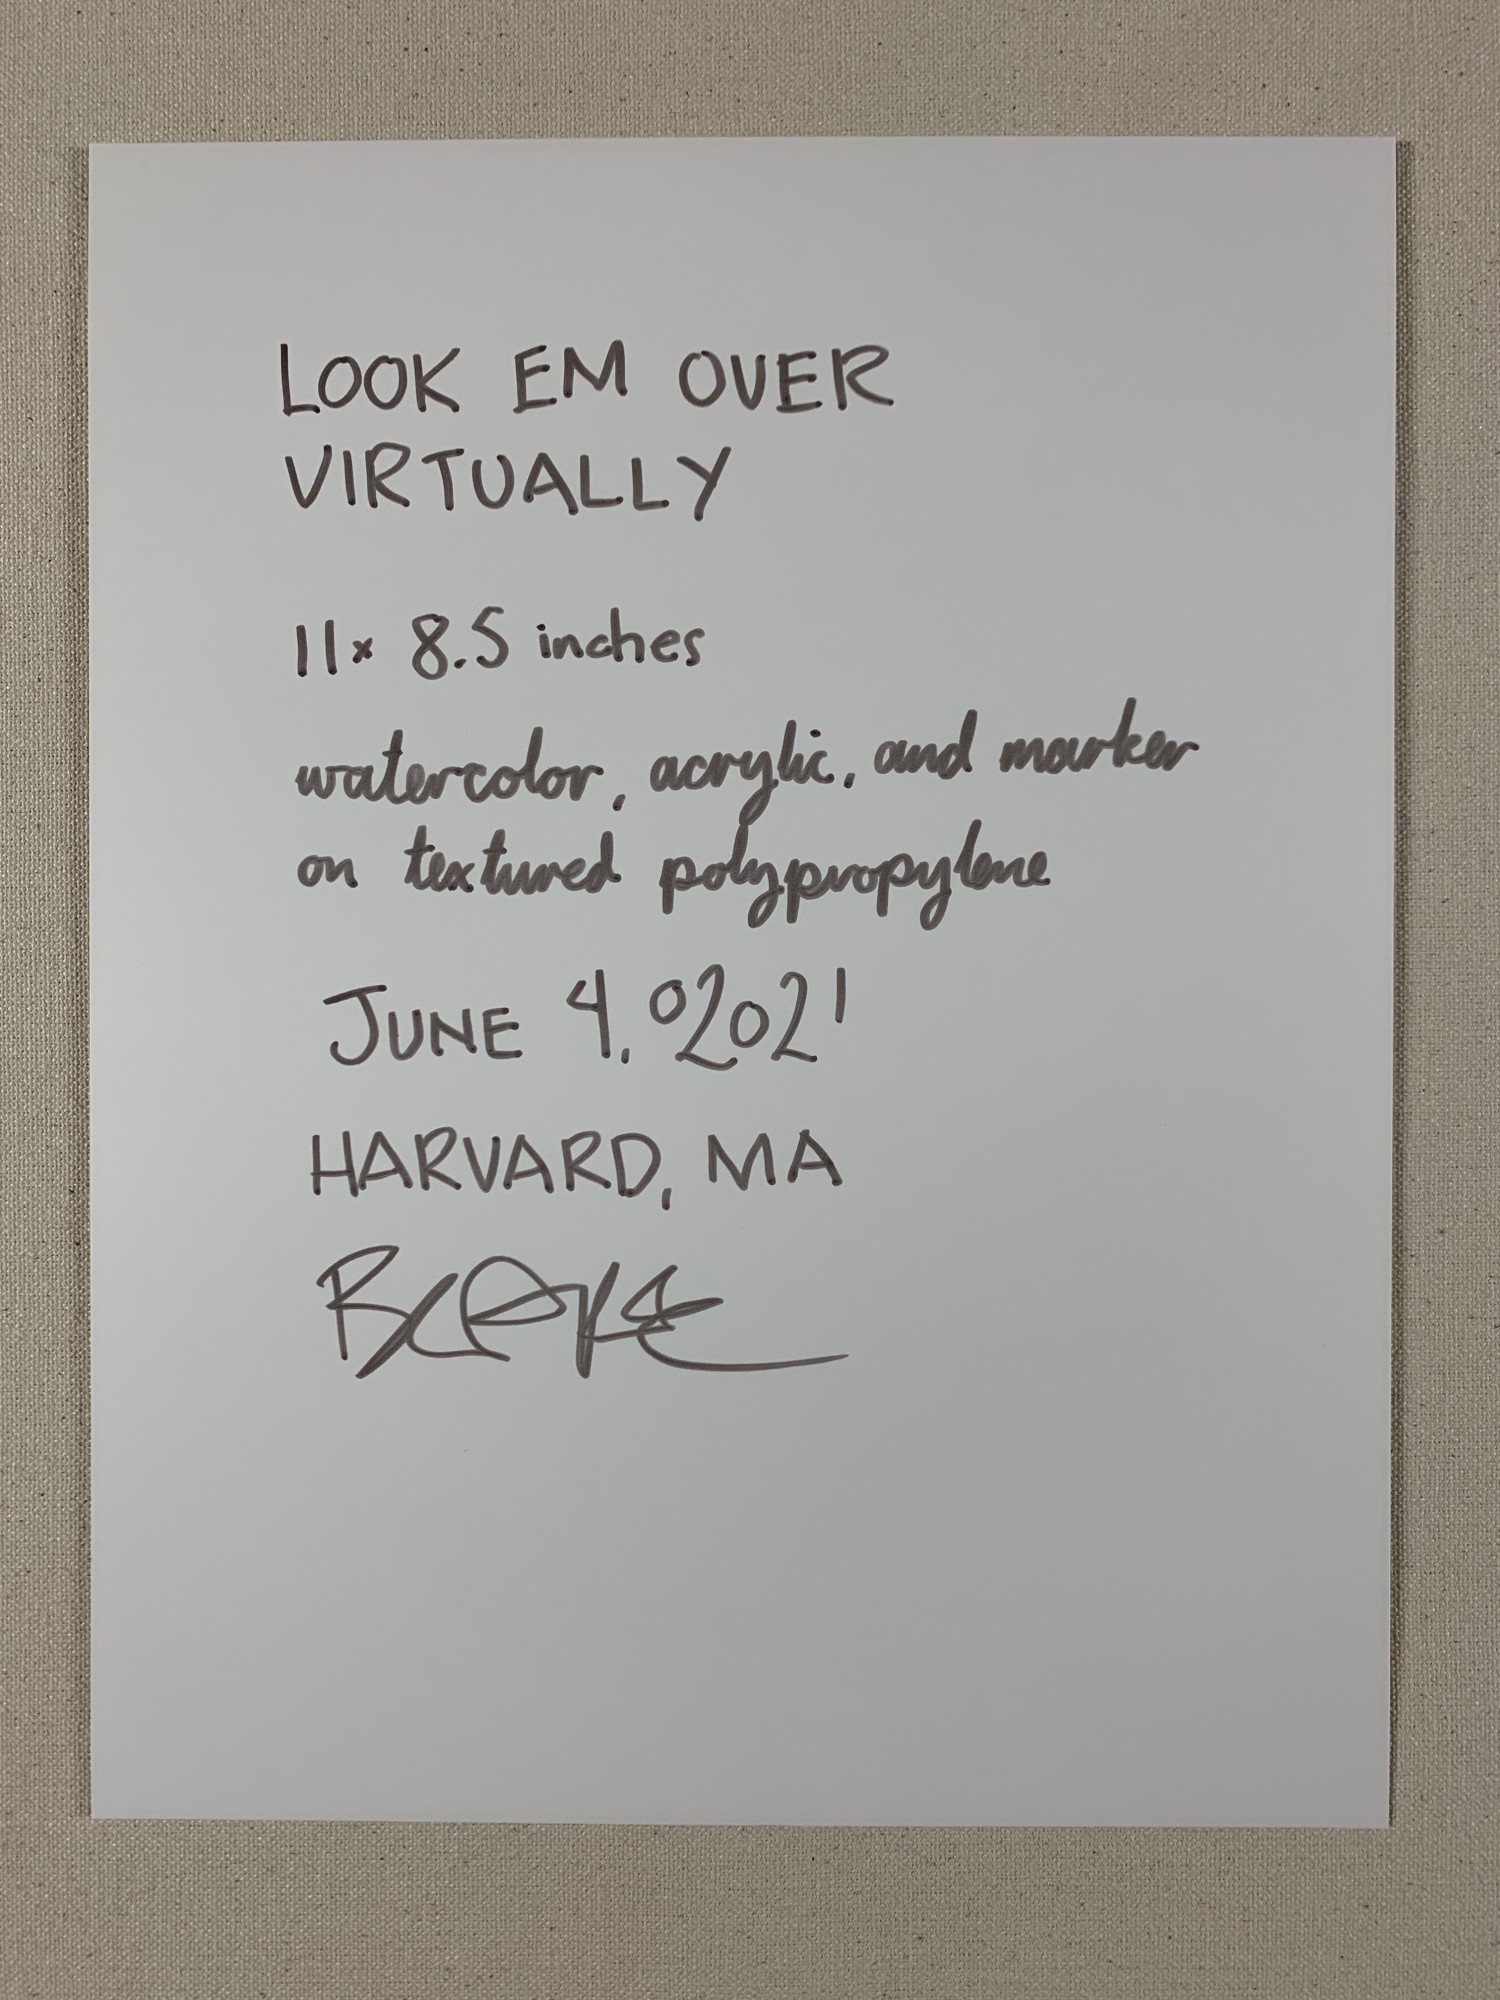 LOOK EM OVER
VIRTUALLY
11x 8.5 inches
watercolor, acrylic, and marker
on textured polypropylene
JUNE 4, 02021
HARVARD, MA